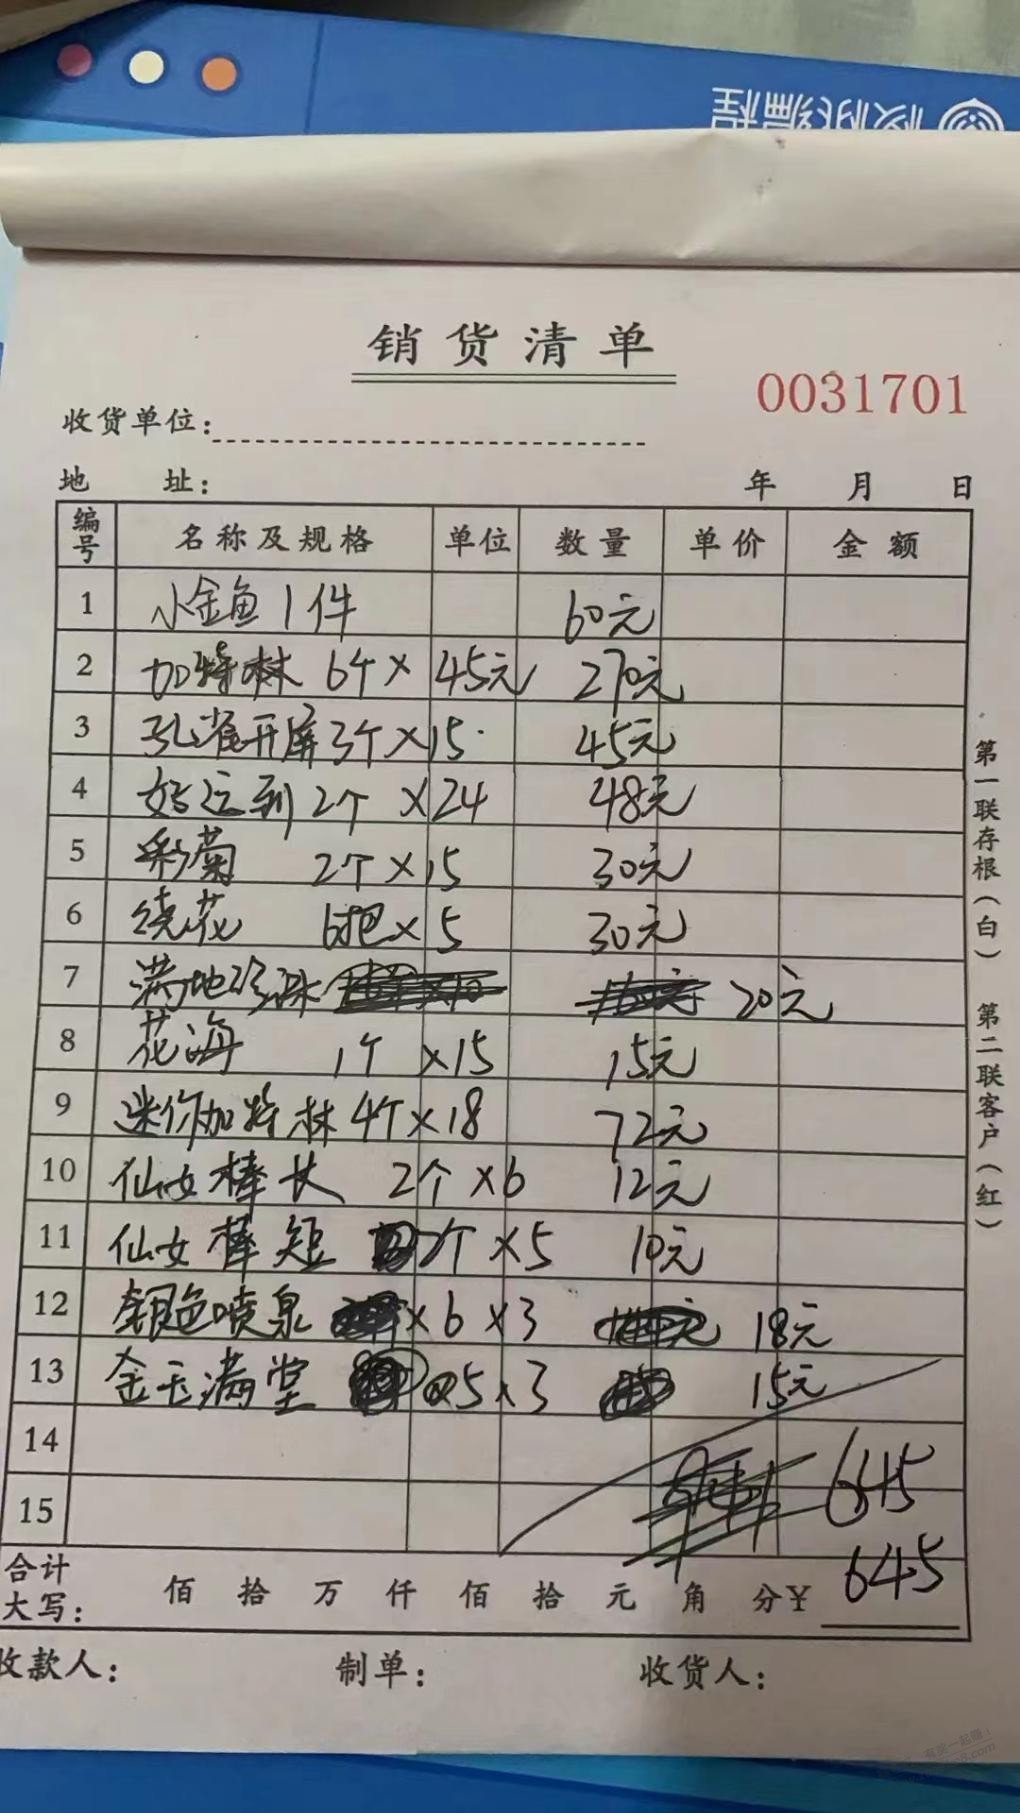 编程
销货清单
0031701
收货单位：
地 址： 年 月 日
编号 名称及规格 单位 数量 单价 金额
1 小金鱼1件 60元
2 加特林 6个× 45元 270元
3 孔雀开屏3个×15 45元
4 好运到2个 ×24 48元
5 彩菊 2个×15 30元
6 绕花 6把×5 30元
7 满地珍珠 20元
8 花海 1个 ×15 15元
9 迷你加特林 4个×18 72元
10 仙女棒长 2个×6 12元
11 仙女棒短 2个×5 10元
12 银色喷泉 ×6×3 18元
13 金玉满堂 ×5×3 15元
14 645
15
合计大写： 佰 拾 万 仟 佰 拾 元 角 分¥ 645
收款人： 制单： 收货人：
第一联存根（白） 第二联客户（红）